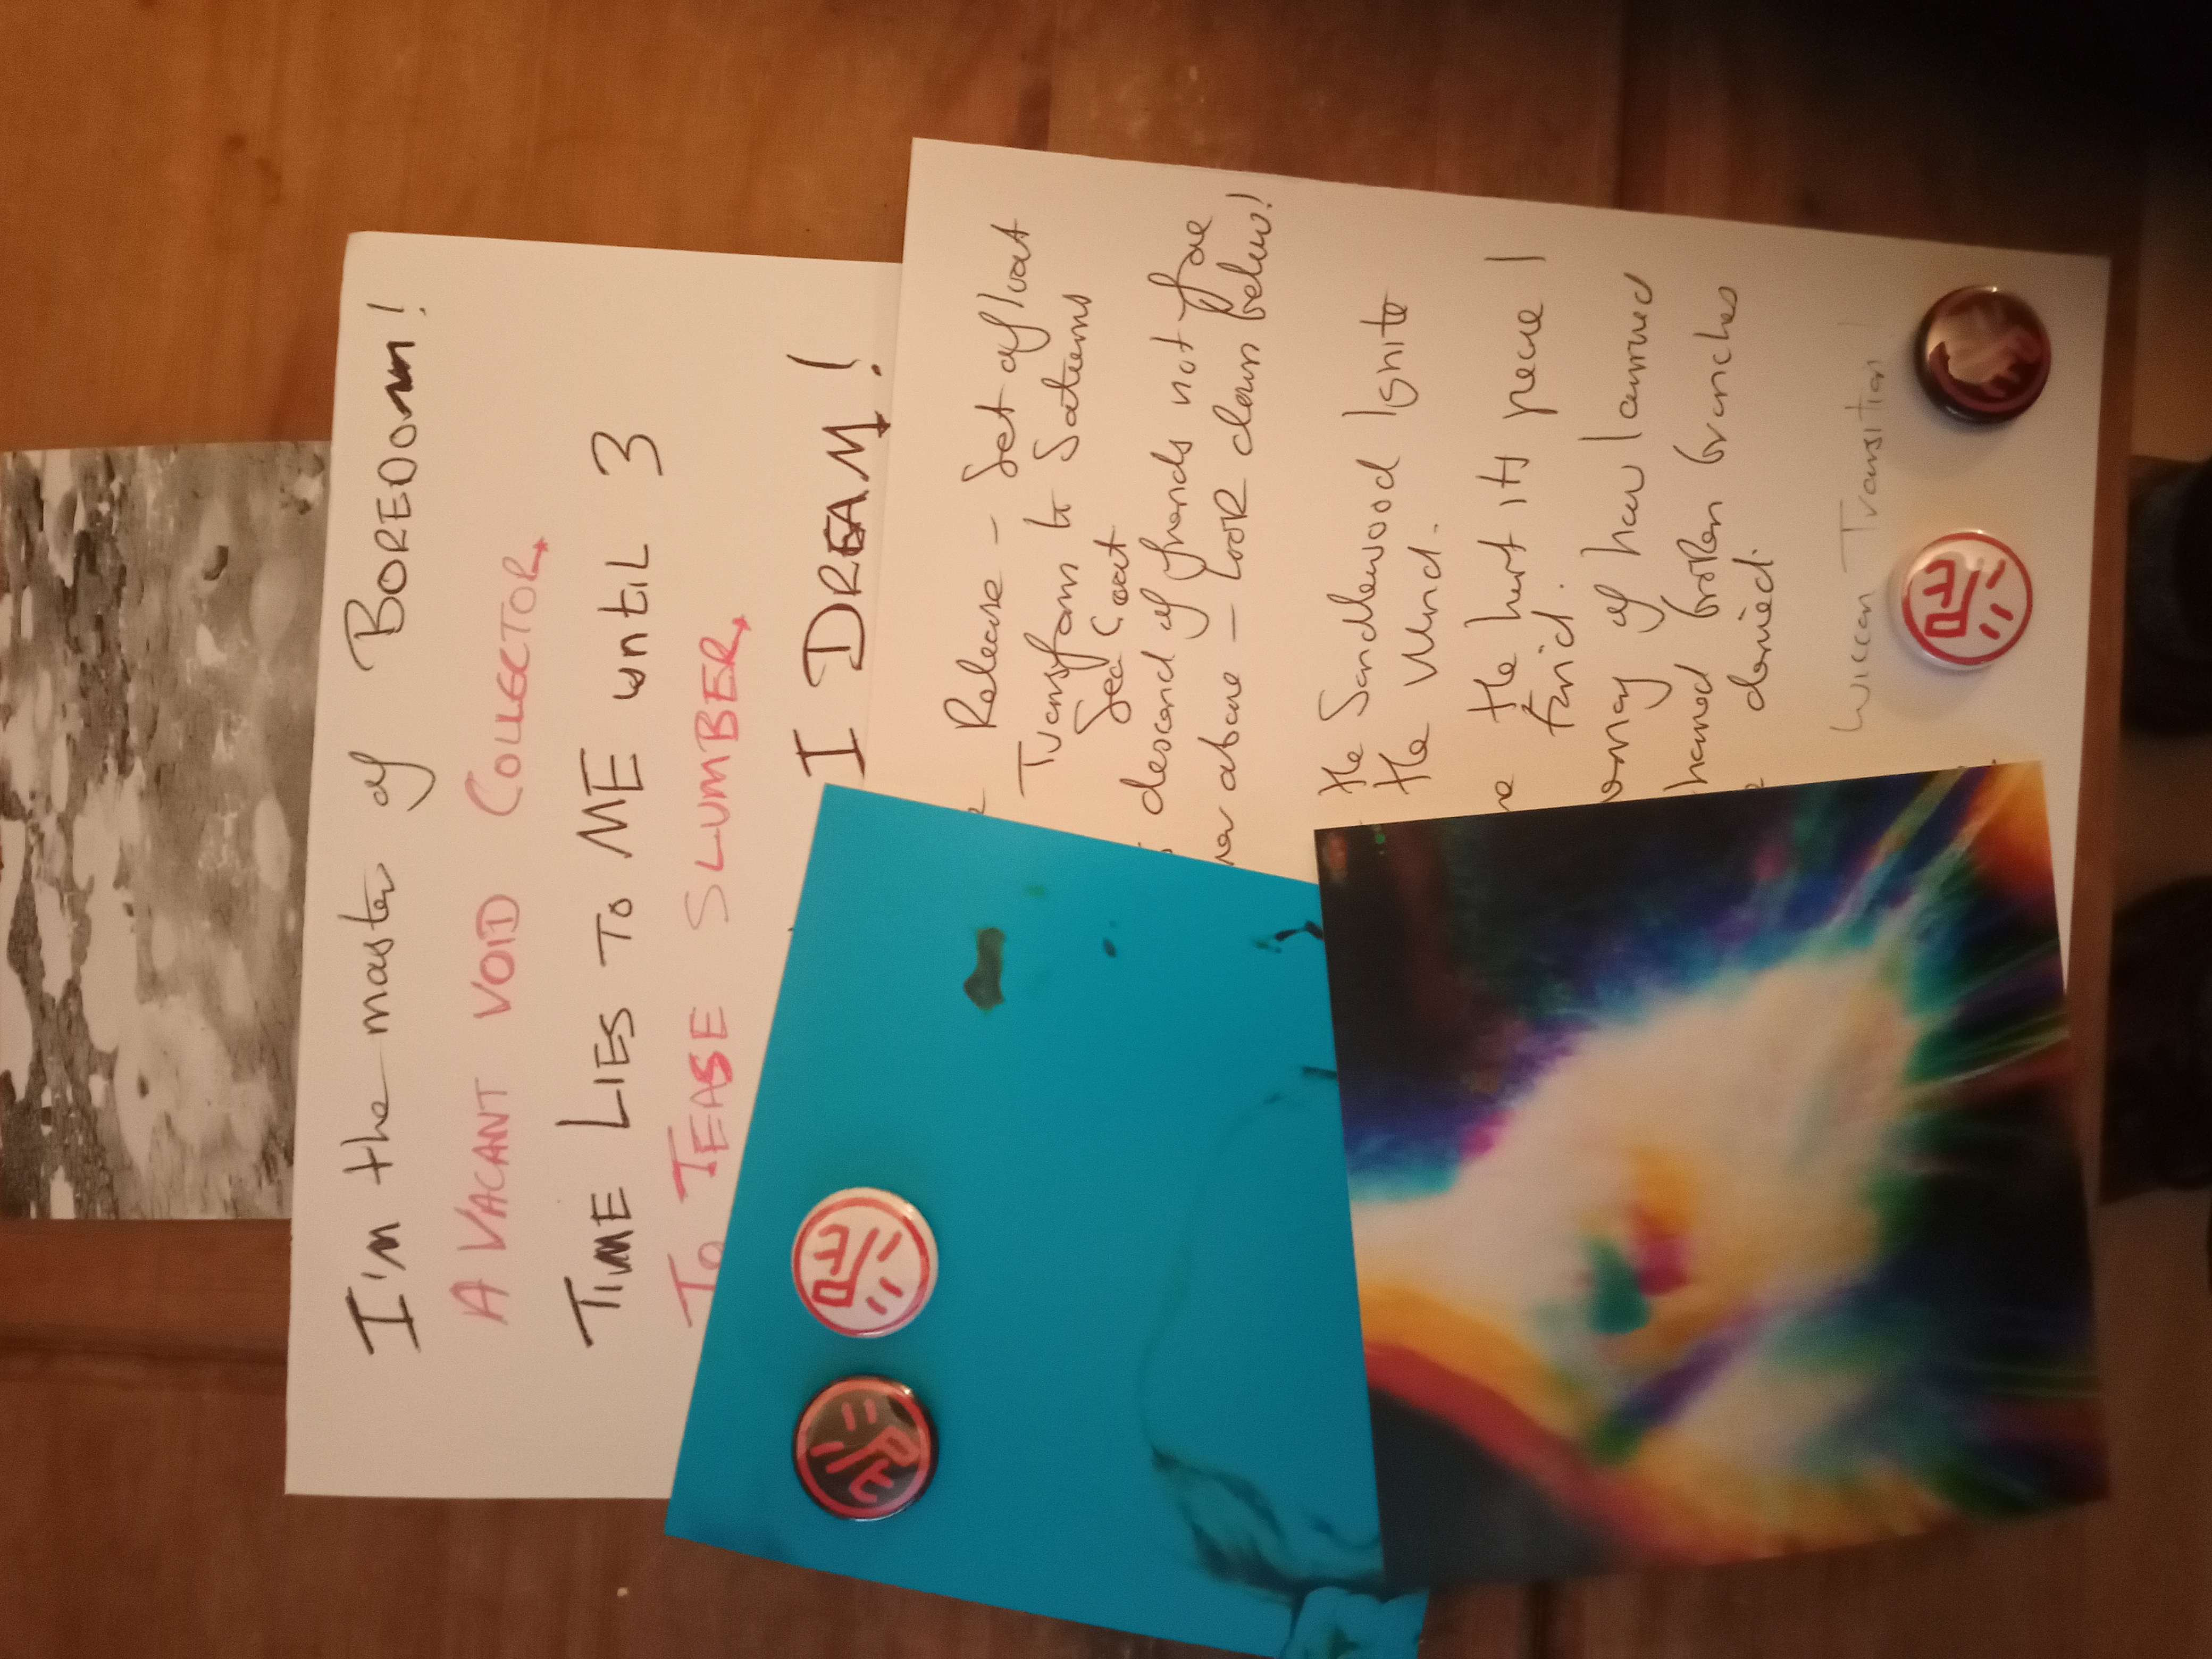 I'm the master of BOREDOM!
A VACANT VOID COLLECTOR
TIME LIES TO ME until 3
TO TEASE SLUMBER
I DREAM!
Release - Set afloat
Transform to Saturns
Sea Goat
descend of friends not foe
above - LOOK down below!
the Sandlewood Ignite
the Wind.
the hurt its peace I
find.
of how I carried
broken branches
denied.
Wiccan Transition